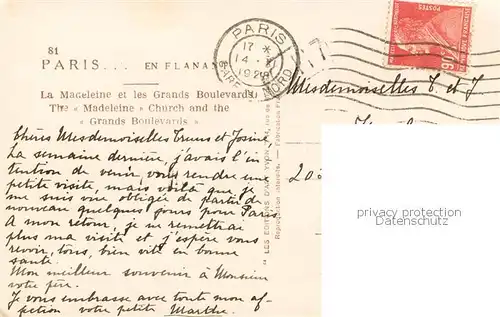 81
PARIS... EN FLANANT
La Madeleine et les Grands Boulevards
The « Madeleine » Church and the
« Grands Boulevards »
PARIS
17 *
14 - 
192
GARE DU NORD
17
POSTES
Mesdemoiselles T. et J.
privacy protection
LES EDITIONS D'ART YVON
Chères Mesdemoiselles et Josine
La semaine dernière, j'avais l'in
tention de venir vous rendre une
petite visite, mais voilà que je
me suis vue obligée de partir de
nouveau quelques jours pour Paris
A mon retour, je ne remettrai
plus ma visite et j'espère vous
revoir, tous, bien vite en bonne
santé.
Mon meilleur souvenir à Monsieur
votre père.
Je vous embrasse avec toute mon af-
fection votre petite Marthe.